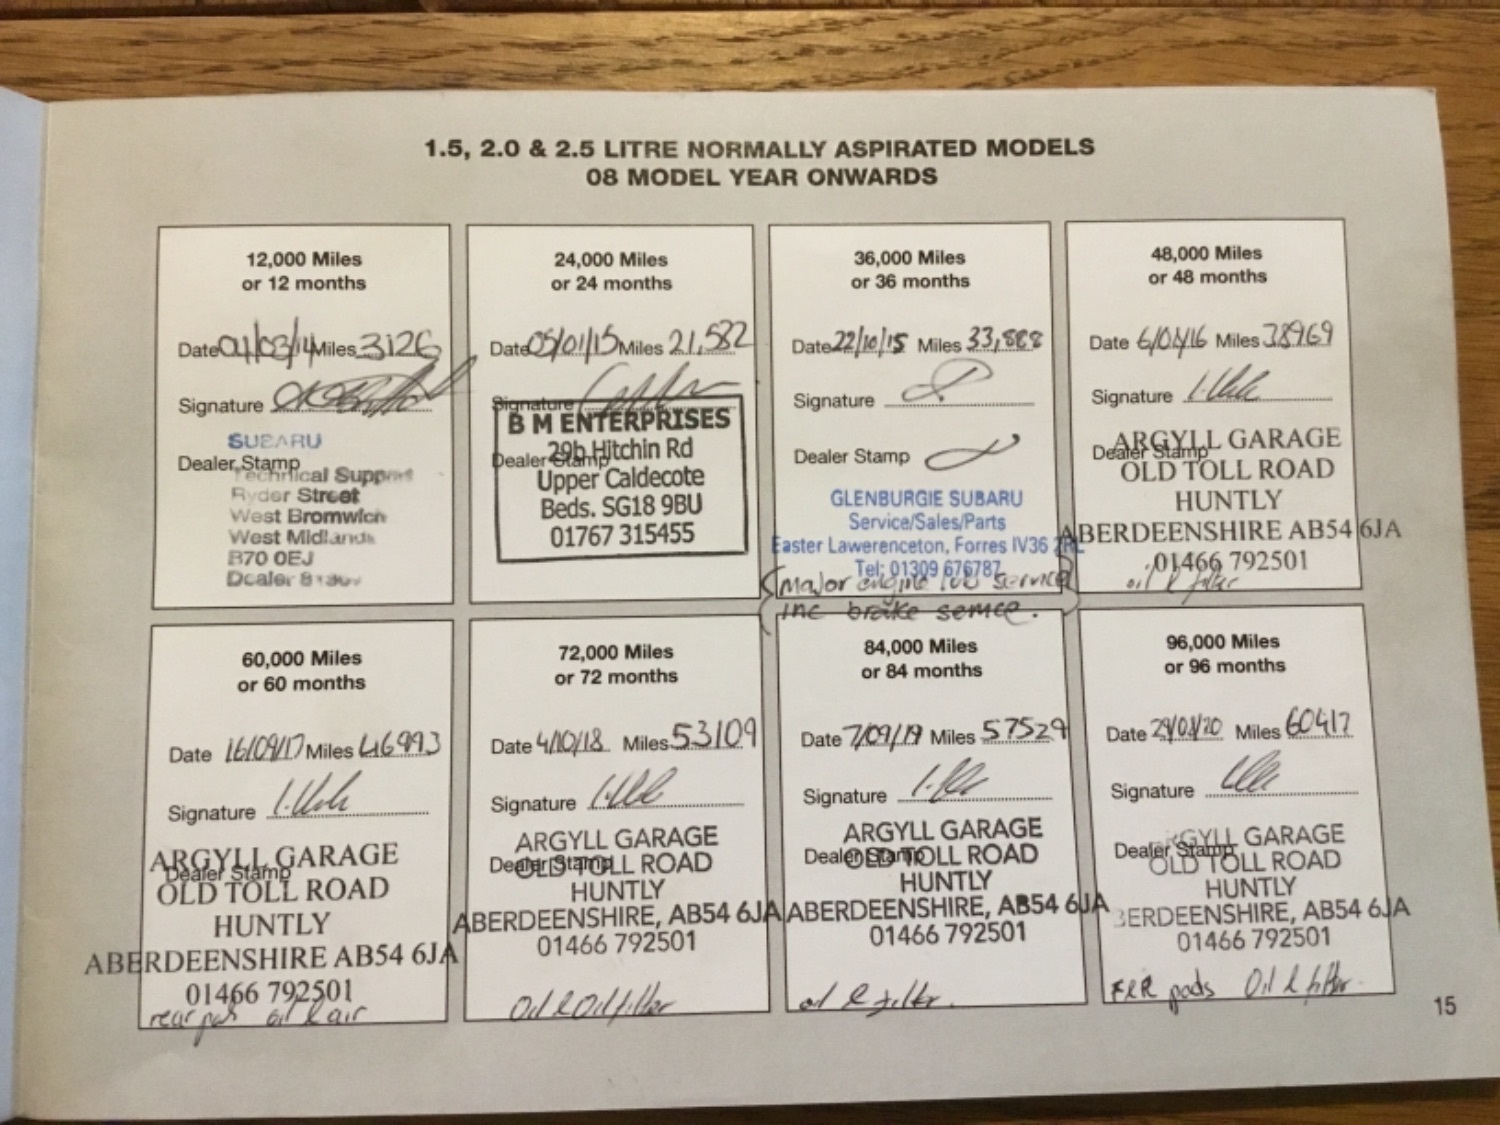 1.5, 2.0 & 2.5 LITRE NORMALLY ASPIRATED MODELS
08 MODEL YEAR ONWARDS
12,000 Miles
or 12 months
Date 04/03/14 Miles 3126
Signature
SUBARU
Dealer Stamp
Technical Support
Ryder Street
West Bromwich
West Midlands
B70 0EJ
Dealer
24,000 Miles
or 24 months
Date 05/01/15 Miles 21,582
Signature
B M ENTERPRISES
29b Hitchin Rd
Dealer Stamp
Upper Caldecote
Beds. SG18 9BU
01767 315455
36,000 Miles
or 36 months
Date 22/10/15 Miles 33,888
Signature
Dealer Stamp
GLENBURGIE SUBARU
Service/Sales/Parts
Easter Lawerenceton, Forres IV36 2RL
Tel: 01309 676787
(major engine lub service
inc brake service.)
48,000 Miles
or 48 months
Date Miles 38969
Signature
ARGYLL GARAGE
Dealer Stamp
OLD TOLL ROAD
HUNTLY
ABERDEENSHIRE AB54 6JA
01466 792501
oil & filter
60,000 Miles
or 60 months
Date 16/09/17 Miles 46993
Signature
ARGYLL GARAGE
Dealer Stamp
OLD TOLL ROAD
HUNTLY
ABERDEENSHIRE AB54 6JA
01466 792501
rear pads oil & air
72,000 Miles
or 72 months
Date 4/10/18 Miles 53109
Signature
ARGYLL GARAGE
Dealer Stamp
OLD TOLL ROAD
HUNTLY
ABERDEENSHIRE, AB54 6JA
01466 792501
Oil & Oil filter
84,000 Miles
or 84 months
Date 7/09/19 Miles 57529
Signature
ARGYLL GARAGE
Dealer Stamp
OLD TOLL ROAD
HUNTLY
ABERDEENSHIRE, AB54 6JA
01466 792501
oil & filter.
96,000 Miles
or 96 months
Date Miles 60417
Signature
ARGYLL GARAGE
Dealer Stamp
OLD TOLL ROAD
HUNTLY
BERDEENSHIRE, AB54 6JA
01466 792501
F&R pads Oil & filter.
15